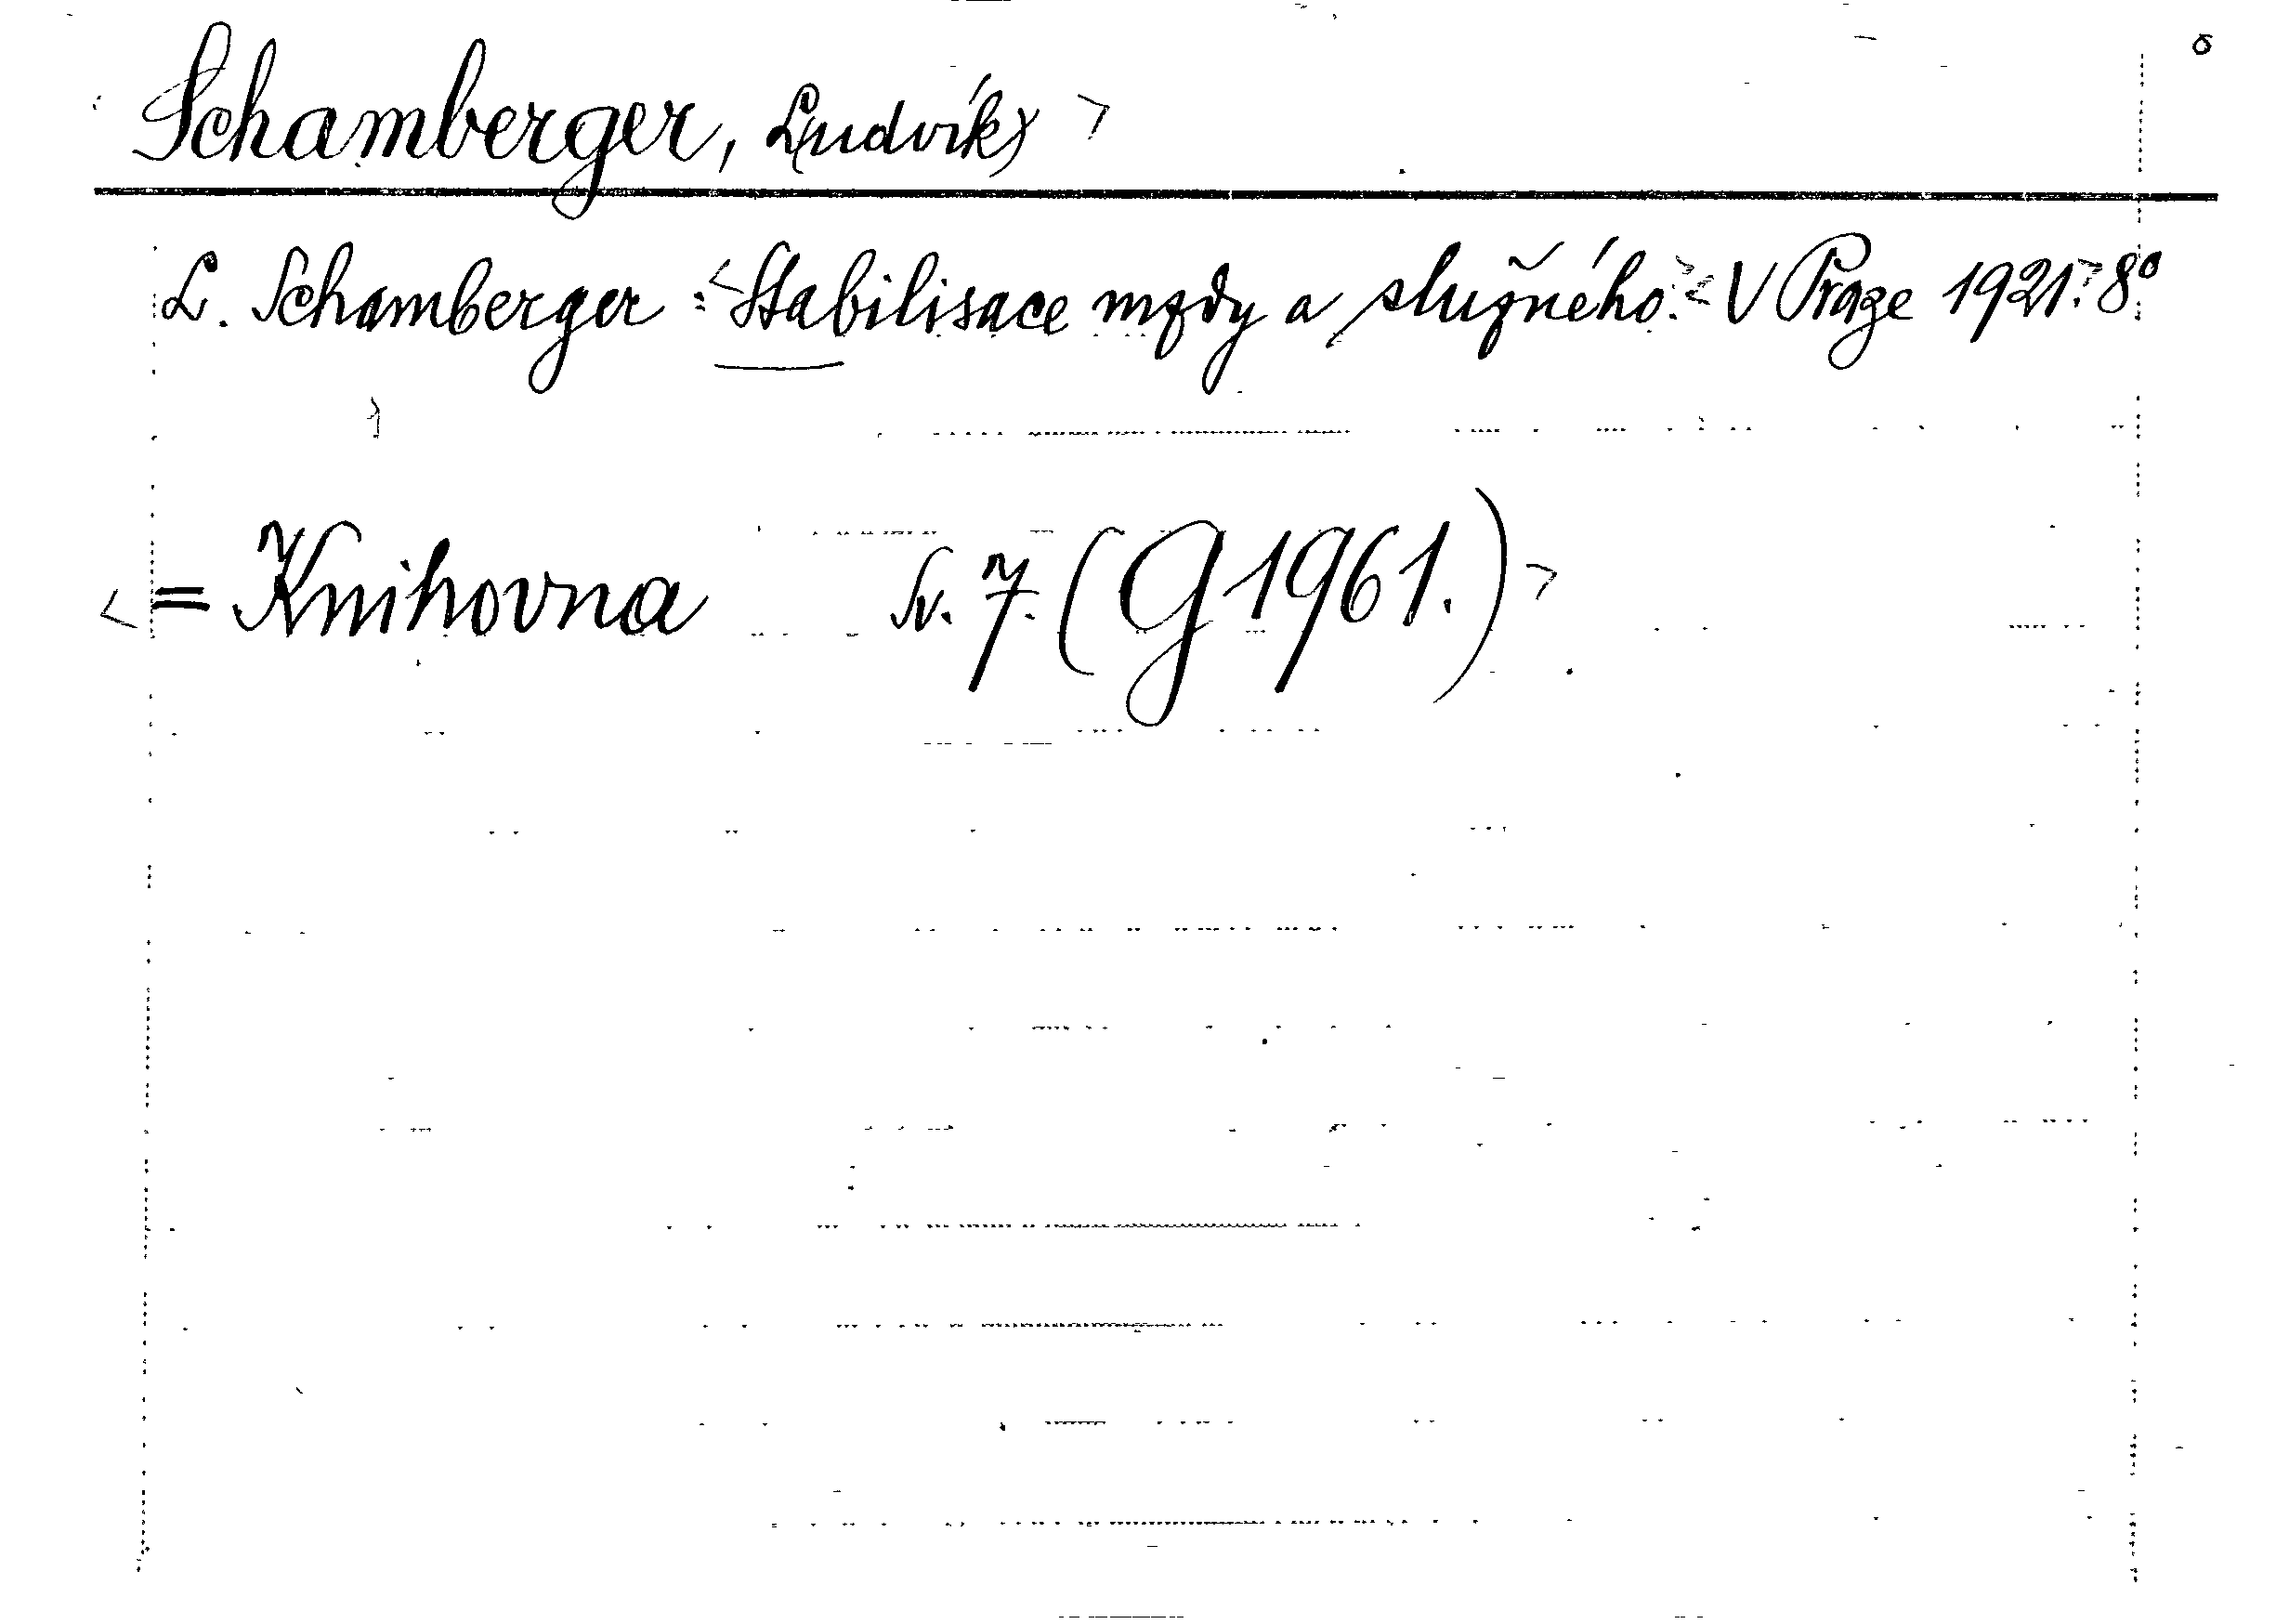 Schamberger, L(udvík)
L. Schamberger: Stabilisace mzdy a služného. V Praze 1921. 8°.
= Knihovna Sv. 7. (G 1961.)